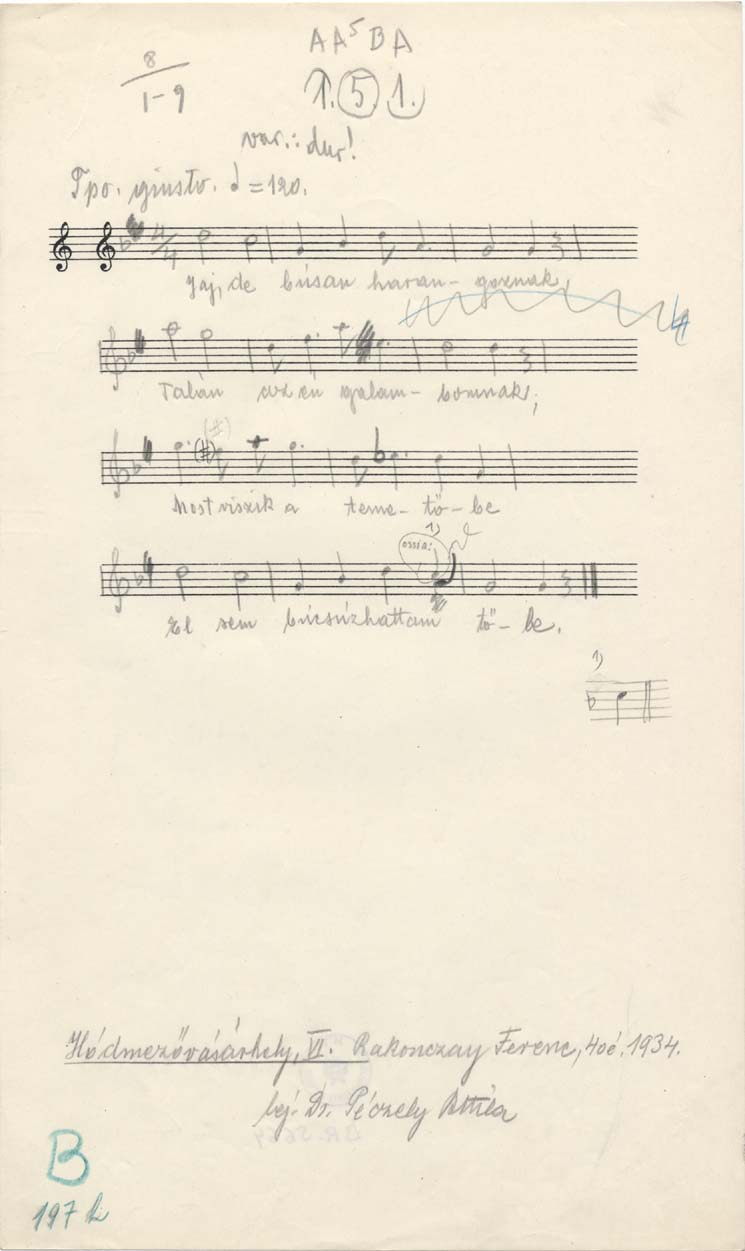 AA⁵BA
8
1-9
1. 5 1.
var.: dur!
Tpo. giusto. = 120.
4/4
Jaj, de búsan haran- goznak,
4
Talán az én galam- bomnak;
(#)
(#)
Most viszik a teme- tő- be
1)
ossia:
El sem búcsúzhattam tő- be.
1)
Hódmezővásárhely, VI. Rakonczay Ferenc, 40é. 1934.
lej. Dr. Péczely Attila
B
197 k